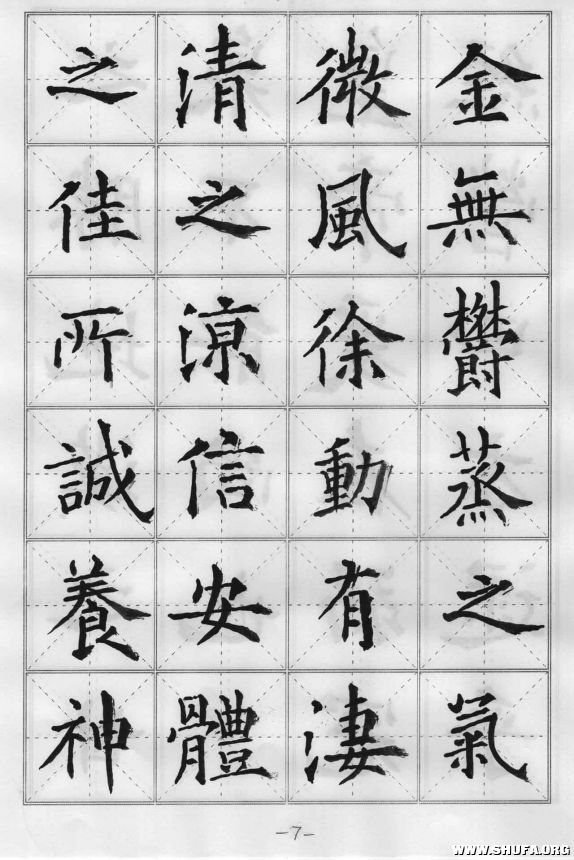 金無鬱蒸之氣
微風徐動有淒
清之涼信安體
之佳所誠養神
-7-
WWW.SHUFA.ORG